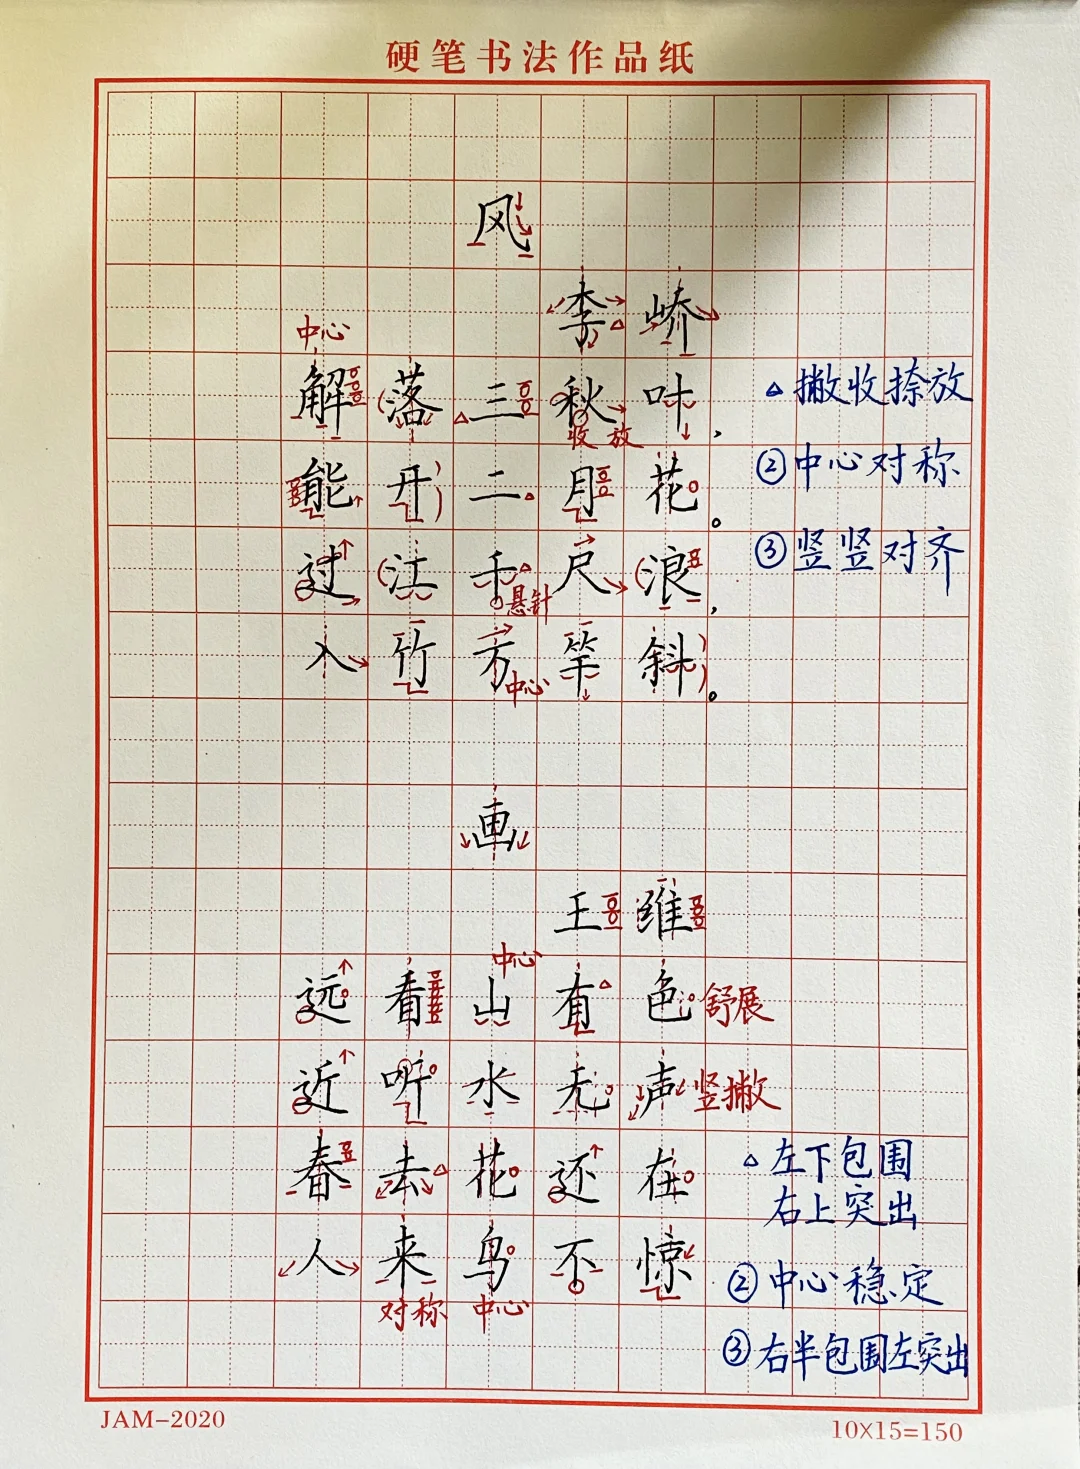 硬笔书法作品纸
风
李峤
中心
解落三秋叶，
收 放
△撇收捺放
能开二月花。
②中心对称
过江千尺浪，
悬针
③竖竖对齐
入竹万竿斜。
中心
画
王维
中心
远看山有色
舒展
近听水无声
竖撇
春去花还在
△左下包围
右上突出
人来鸟不惊
对称 中心
②中心稳定
③右半包围左突出
JAM-2020
10X15=150